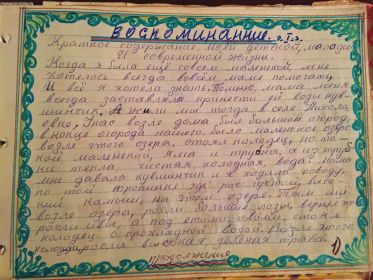 ВОСПОМИНАНИЕ. г. I. г.
Краткое содержание моей детской, молодой
И современной жизни.
Когда я была ещё совсем маленькой, мне
хотелось всегда во всём маме помогать,
И всё я хотела знать. Помню, мама меня
всегда заставляла принести ей воды кув-
шинчик. А жили мы тогда в селе Никола
евке, У нас возле дома был большой огород,
в конце огорода нашего было маленькое озеро,
возле этого озера, стоял колодец, но та-
кой маленький, яма и труба, а из трубы
текла чистая, холодная, вода. Мама
мне давала кувшинчик и я ходила по воду,
по той тропинке где рос густой, высо-
кий камыш, на этом озере. Там ещё
возле озера, росли большие лозы, вернее
росли ивы, а под этими ивами, стоял
колодец с прохладной водой. Возле этого
колодца росла высокая, зелёная трава.
продолжение 1)